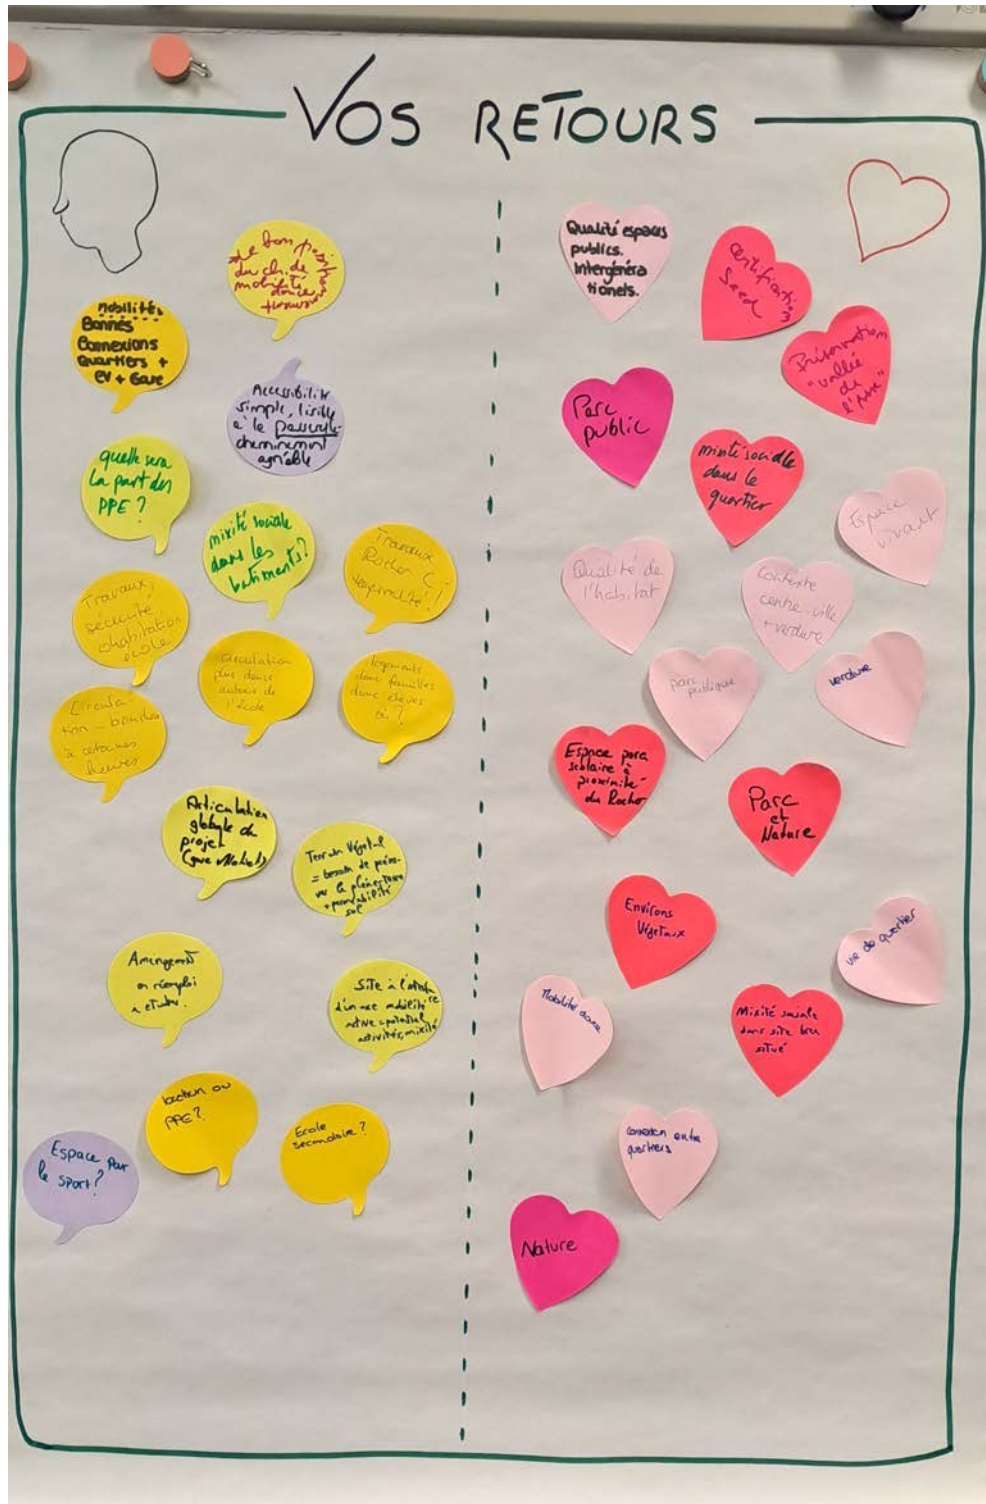 VOS RETOURS
Le bon
du ch. de
mobilité
douce
mobilités
Bonnes
Connexions
Quartiers +
EV + Gare
Accessibilité
simple, lisible
à le passerelle
cheminement
agréable
quelle sera
la part des
PPE ?
mixité sociale
dans les
batiments?
Travaux
Rochor C !
Travaux,
sécurité
cohabitation
école
circulation
plus dense
autour de
l'école
logements
donc familles
donc élèves
où ?
Circula-
tion - bouchon
à certaines
heures
Articulation
globale du
projet
Terrain Végétal
= besoin de préser-
ver la pleine terre
+ perméabilité
sol
Amenagement
en réemploi
a etudier.
Site à
d'un axe mobilité
active = potentiel
activités, mixité
location ou
PPE?
Ecole
secondaire ?
Espace pour
le sport?
Qualité espaces
publics.
Intergénéra
tionels.
Certification
Seed
Préservation
"vallée
de
Parc
public
mixité sociale
dans le
quartier
Espace
vivant
Qualité de
l'habitat
Contexte
centre-ville
+ verdure
parc
publique
verdure
Espace para
scolaire à
proximité
du Rocher
Parc
et
Nature
Environs
Végétaux
vie de quartier
Mobilité douce
Mixité sociale
dans site bien
situé
connexion entre
quartiers
Nature